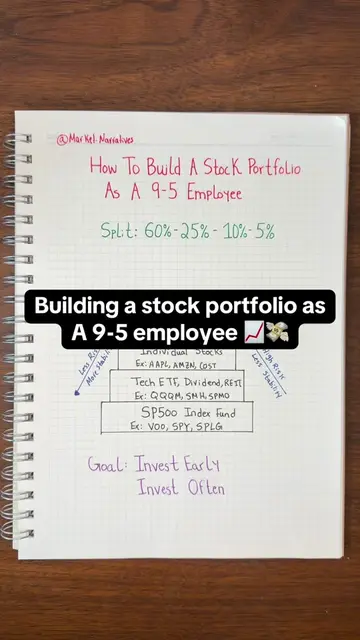 @Market.Narratives
How To Build A Stock Portfolio
As A 9-5 Employee
Split: 60% - 25% - 10% - 5%
Building a stock portfolio as
A 9-5 employee 📈💸
Individual Stocks
Ex: AAPL, AMZN, COST
Less Risk
More Stability
High Risk
Less Stability
Tech ETF, Dividend, REIT
Ex: QQQM, SMH, SPMO
SP500 Index Fund
Ex: VOO, SPY, SPLG
Goal: Invest Early
Invest Often